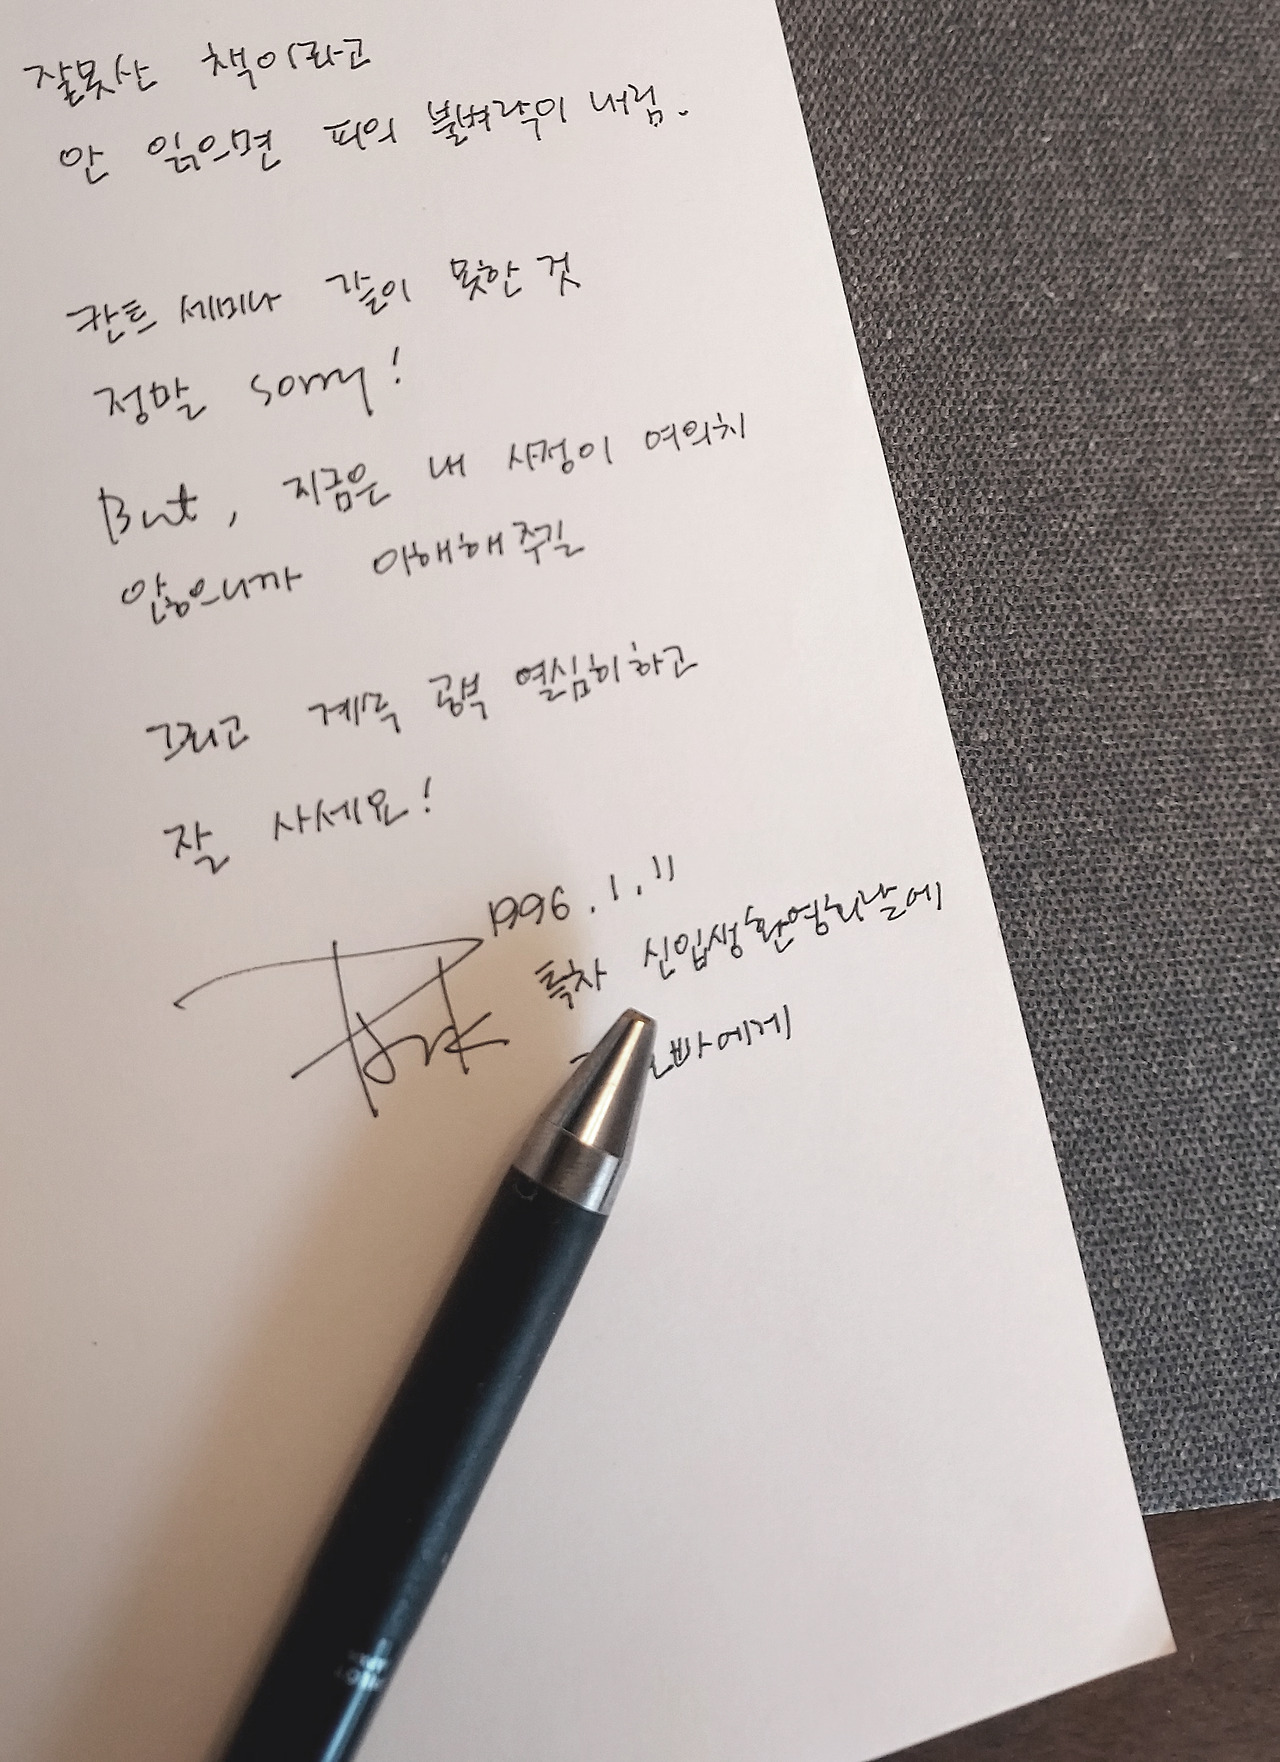 잘못산 책이라고
안 읽으면 피의 불벼락이 내림.
칸트 세미나 같이 못한 것
정말 sorry!
But, 지금은 내 사정이 여의치
않으니까 이해해주길
그리고 계속 공부 열심히하고
잘 사세요!
1996.1.11
Park 특차 신입생환영회날에
빠에게